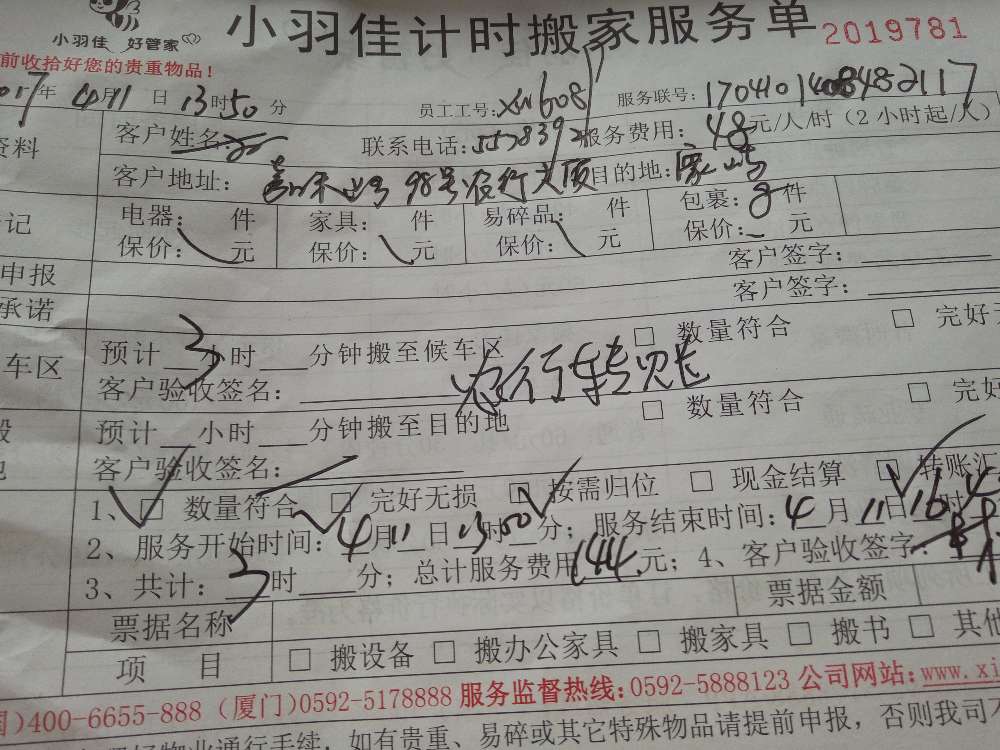 小羽佳 好管家
小羽佳计时搬家服务单 2019781
前收拾好您的贵重物品！
2017年 4月11日 13时50分 员工工号: 服务联号: 170410140848
客户姓名: 联系电话: 服务费用: 48元/人/时（2小时起/人）
资料
客户地址: 98号农行大顶 目的地:
电器: 件 家具: 件 易碎品: 件 包裹: 8件
记
保价: 元 保价: 元 保价: 元 保价: 元
客户签字:
申报
客户签字:
承诺
预计 3小时 分钟搬至候车区 □ 数量符合 □ 完好
车区
客户验收签名: 农行转账
预计 小时 分钟搬至目的地 □ 数量符合 □ 完好
客户验收签名:
1、□ 数量符合 □ 完好无损 □ 按需归位 □ 现金结算 □ 转账汇
2、服务开始时间: 4月11日13时50分；服务结束时间: 4月11日16时
3、共计: 3时 分；总计服务费用144元；4、客户验收签字:
票据名称 票据金额
项 目 □ 搬设备 □ 搬办公家具 □ 搬家具 □ 搬书 □ 其他
国)400-6655-888 (厦门)0592-5178888 服务监督热线:0592-5888123 公司网站:www.xi
好物业通行手续，如有贵重、易碎或其它特殊物品请提前申报，否则我司不